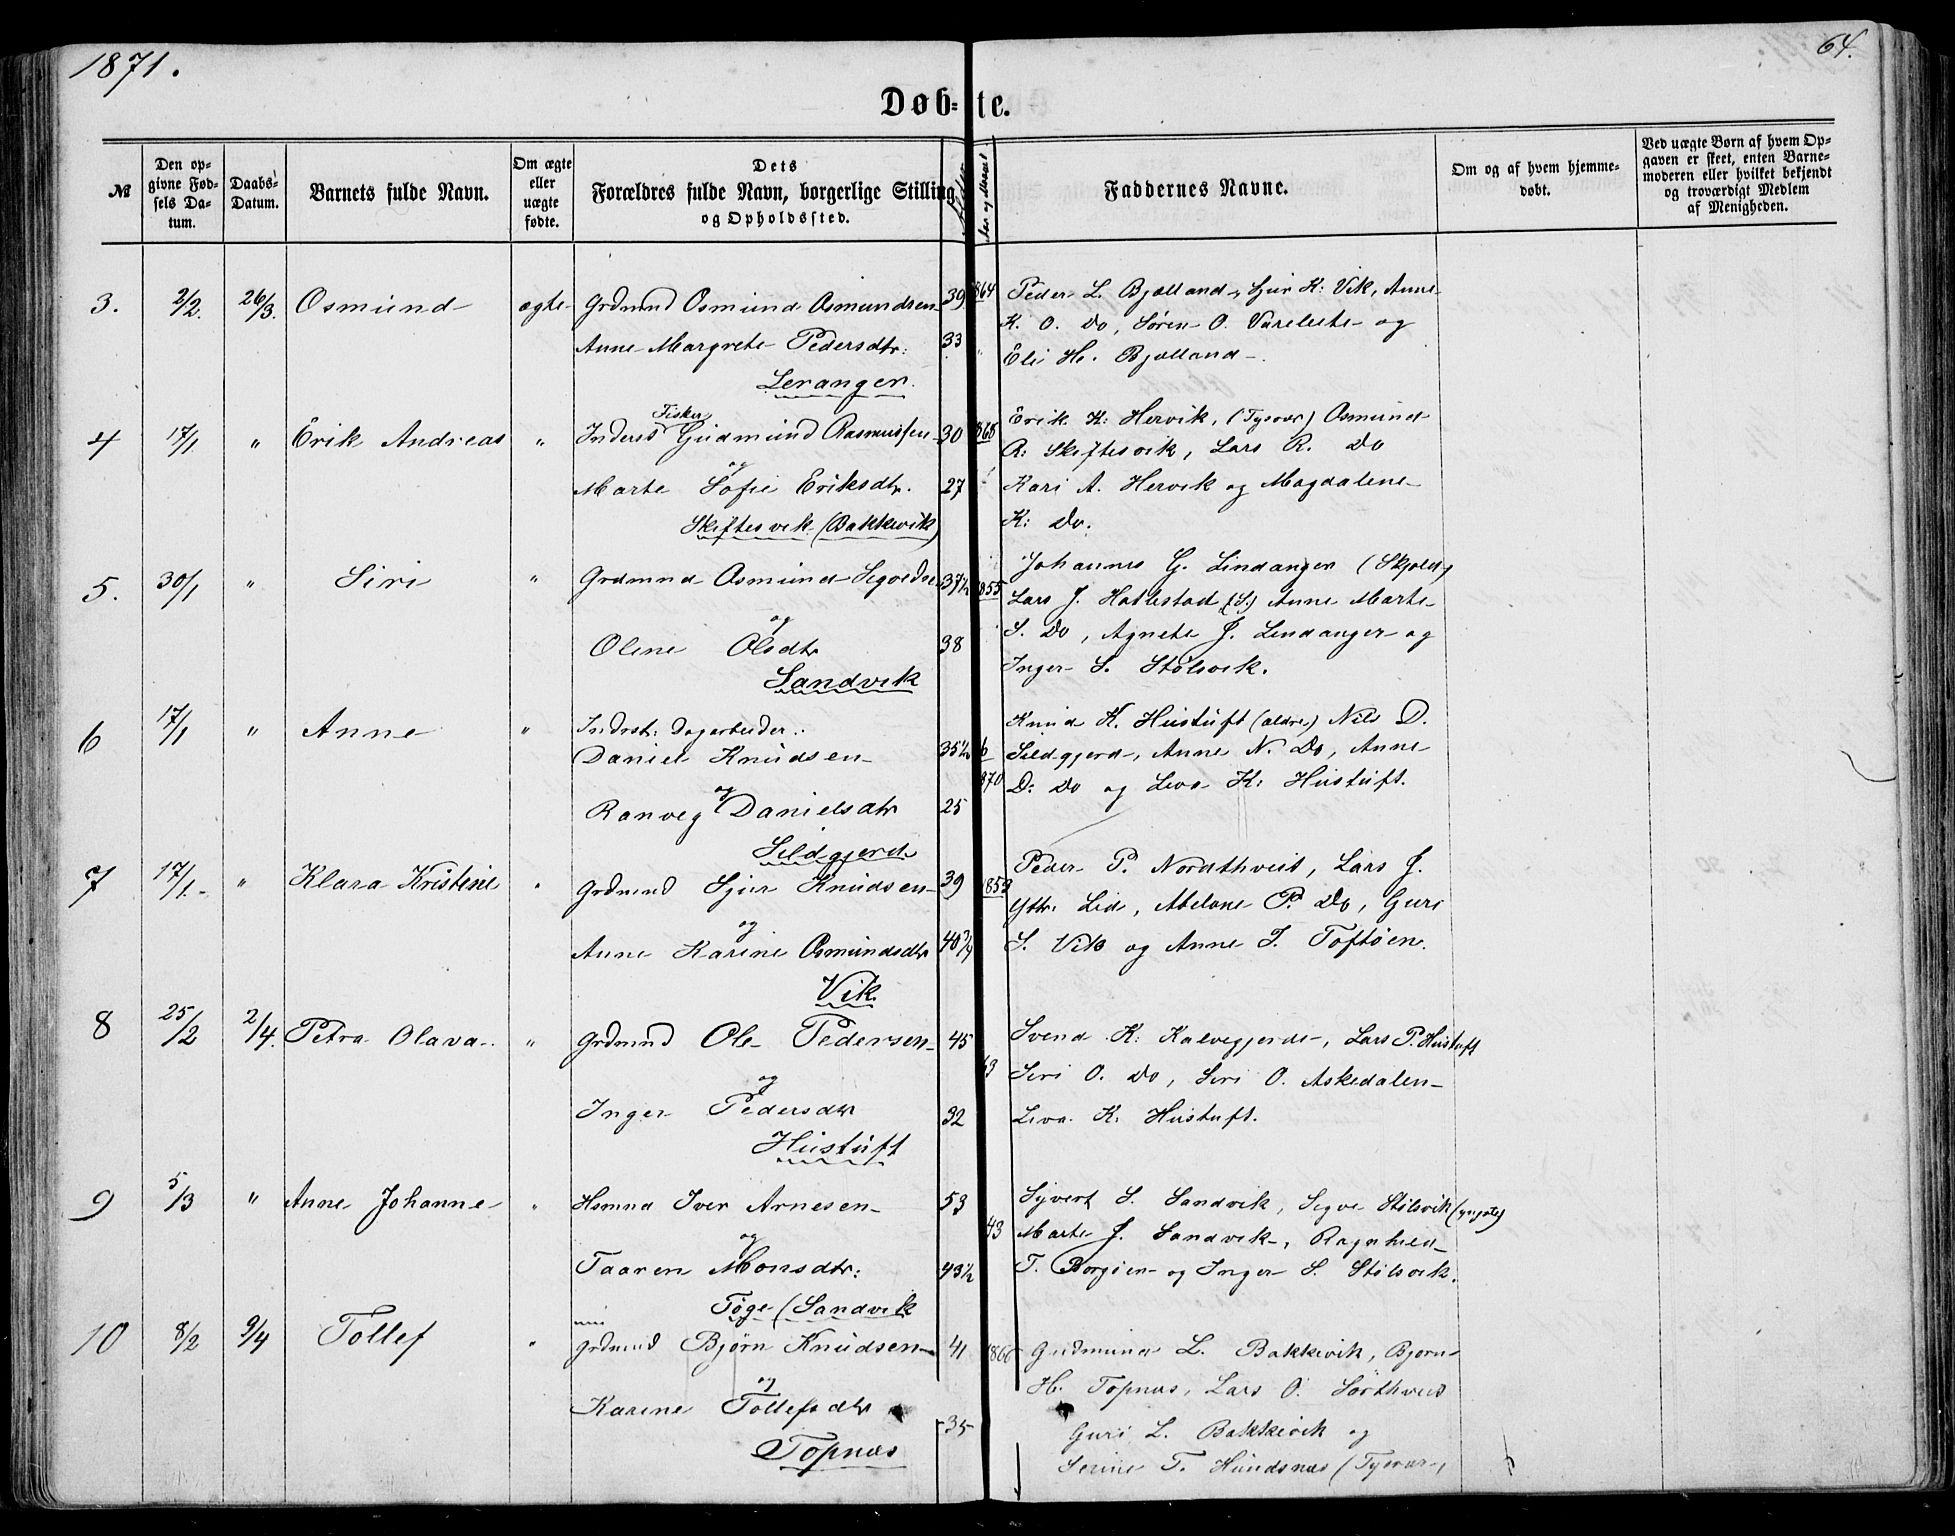 1871.
64.
Døb-te.
№
Den opgivne Fødsels Datum.
Daabs-Datum.
Barnets fulde Navn.
Om ægte eller uægte fødte.
Dets Forældres fulde Navn, borgerlige Stilling og Opholdssted.
Faddernes Navne.
Om og af hvem hjemmedøbt.
Ved uægte Børn af hvem Opgaven er skeet, enten Barnemoderen eller hvilket bekjendt og troværdigt Medlem af Menigheden.
3. 2/2. 26/3. Osmund ægte Grdmnd Osmund Osmundsen 39 864 Peder L. Bjælland, Sjur K: Vik, Anne
K. O. Do, Søren O. Vareleite og
Anne Margrete Pedersdtr: 33 Eli H. Bjælland.
Leranger.
Fisker
4 17/1. " Erik Andreas " Inderst Gudmund Rasmussen 30 865 Erik K: Hervik, (Tysvær) Osmund
og
R: Skiftesvik, Lars R. Do
Marte Sofie Eriksdtr. 27 Kari A. Hervik og Magdalene
Skiftesvik (Bakkevik) K: Do.
5. 30/1 " Siri " Grdmnd Osmund Segvedsen 37½ 855 Johannes G. Lindanger (Skjold)
Lars J. Hatlestad (S.) Anne Marte
og
S. Do, Agnete J. Lindanger og
Oline Olsdtr 38
Inger S. Stølsvik.
Sandvik
6 17/1 " Anne " Indrst: dagarbeider.
Knud K. Hustuft (ældre) Nils D.
Daniel Knudsen 35½ 6 Sildgjerd, Anne N. Do, Anne
870 D: Do og Liva K: Hustuft.
og
Ranveg Danielsdtr 25
Sildgjerd
7 17/1. " Klara Kristine " Grdmnd Sjur Knudsen 39 853 Peder P. Nordthveit, Lars J.
Yttr: Lid, Abelone P. Do, Guri
og
Anne Karine Osmundsdtr 40¾ S. Vik og Anne I. Toftøen.
Vik
8 25/2 2/4. Petra Olava " Grdmnd Ole Pedersen 45 Svend K: Kalvegjerde, Lars P. Hustuft
og
63 Siri O. Do, Siri O. Askedalen
Inger Pedersdtr 32 Liva K. Hustuft.
Hustuft
9 5/3 " Anne Johanne " Hsmnd Iver Arnesen 53 Syvert S. Sandvik, Segve Stølsvik (yngste)
og
43 Marte J. Sandvik, Ragnhild
Taaren Monsdtr: 43½ T. Borgøen og Inger S. Stølsvik.
Tøge (Sandvik
10 8/2 9/4 Tollef " Grdmnd Bjørn Knudsen 41 866 Gudmund L. Bakkevik, Bjørn
og
H. Topnæs, Lars O. Sørthveid
Karine Tollefsdtr 35 Guri L. Bakkevik og
Topnæs Serine T. Hundsnæs (Tysvær,